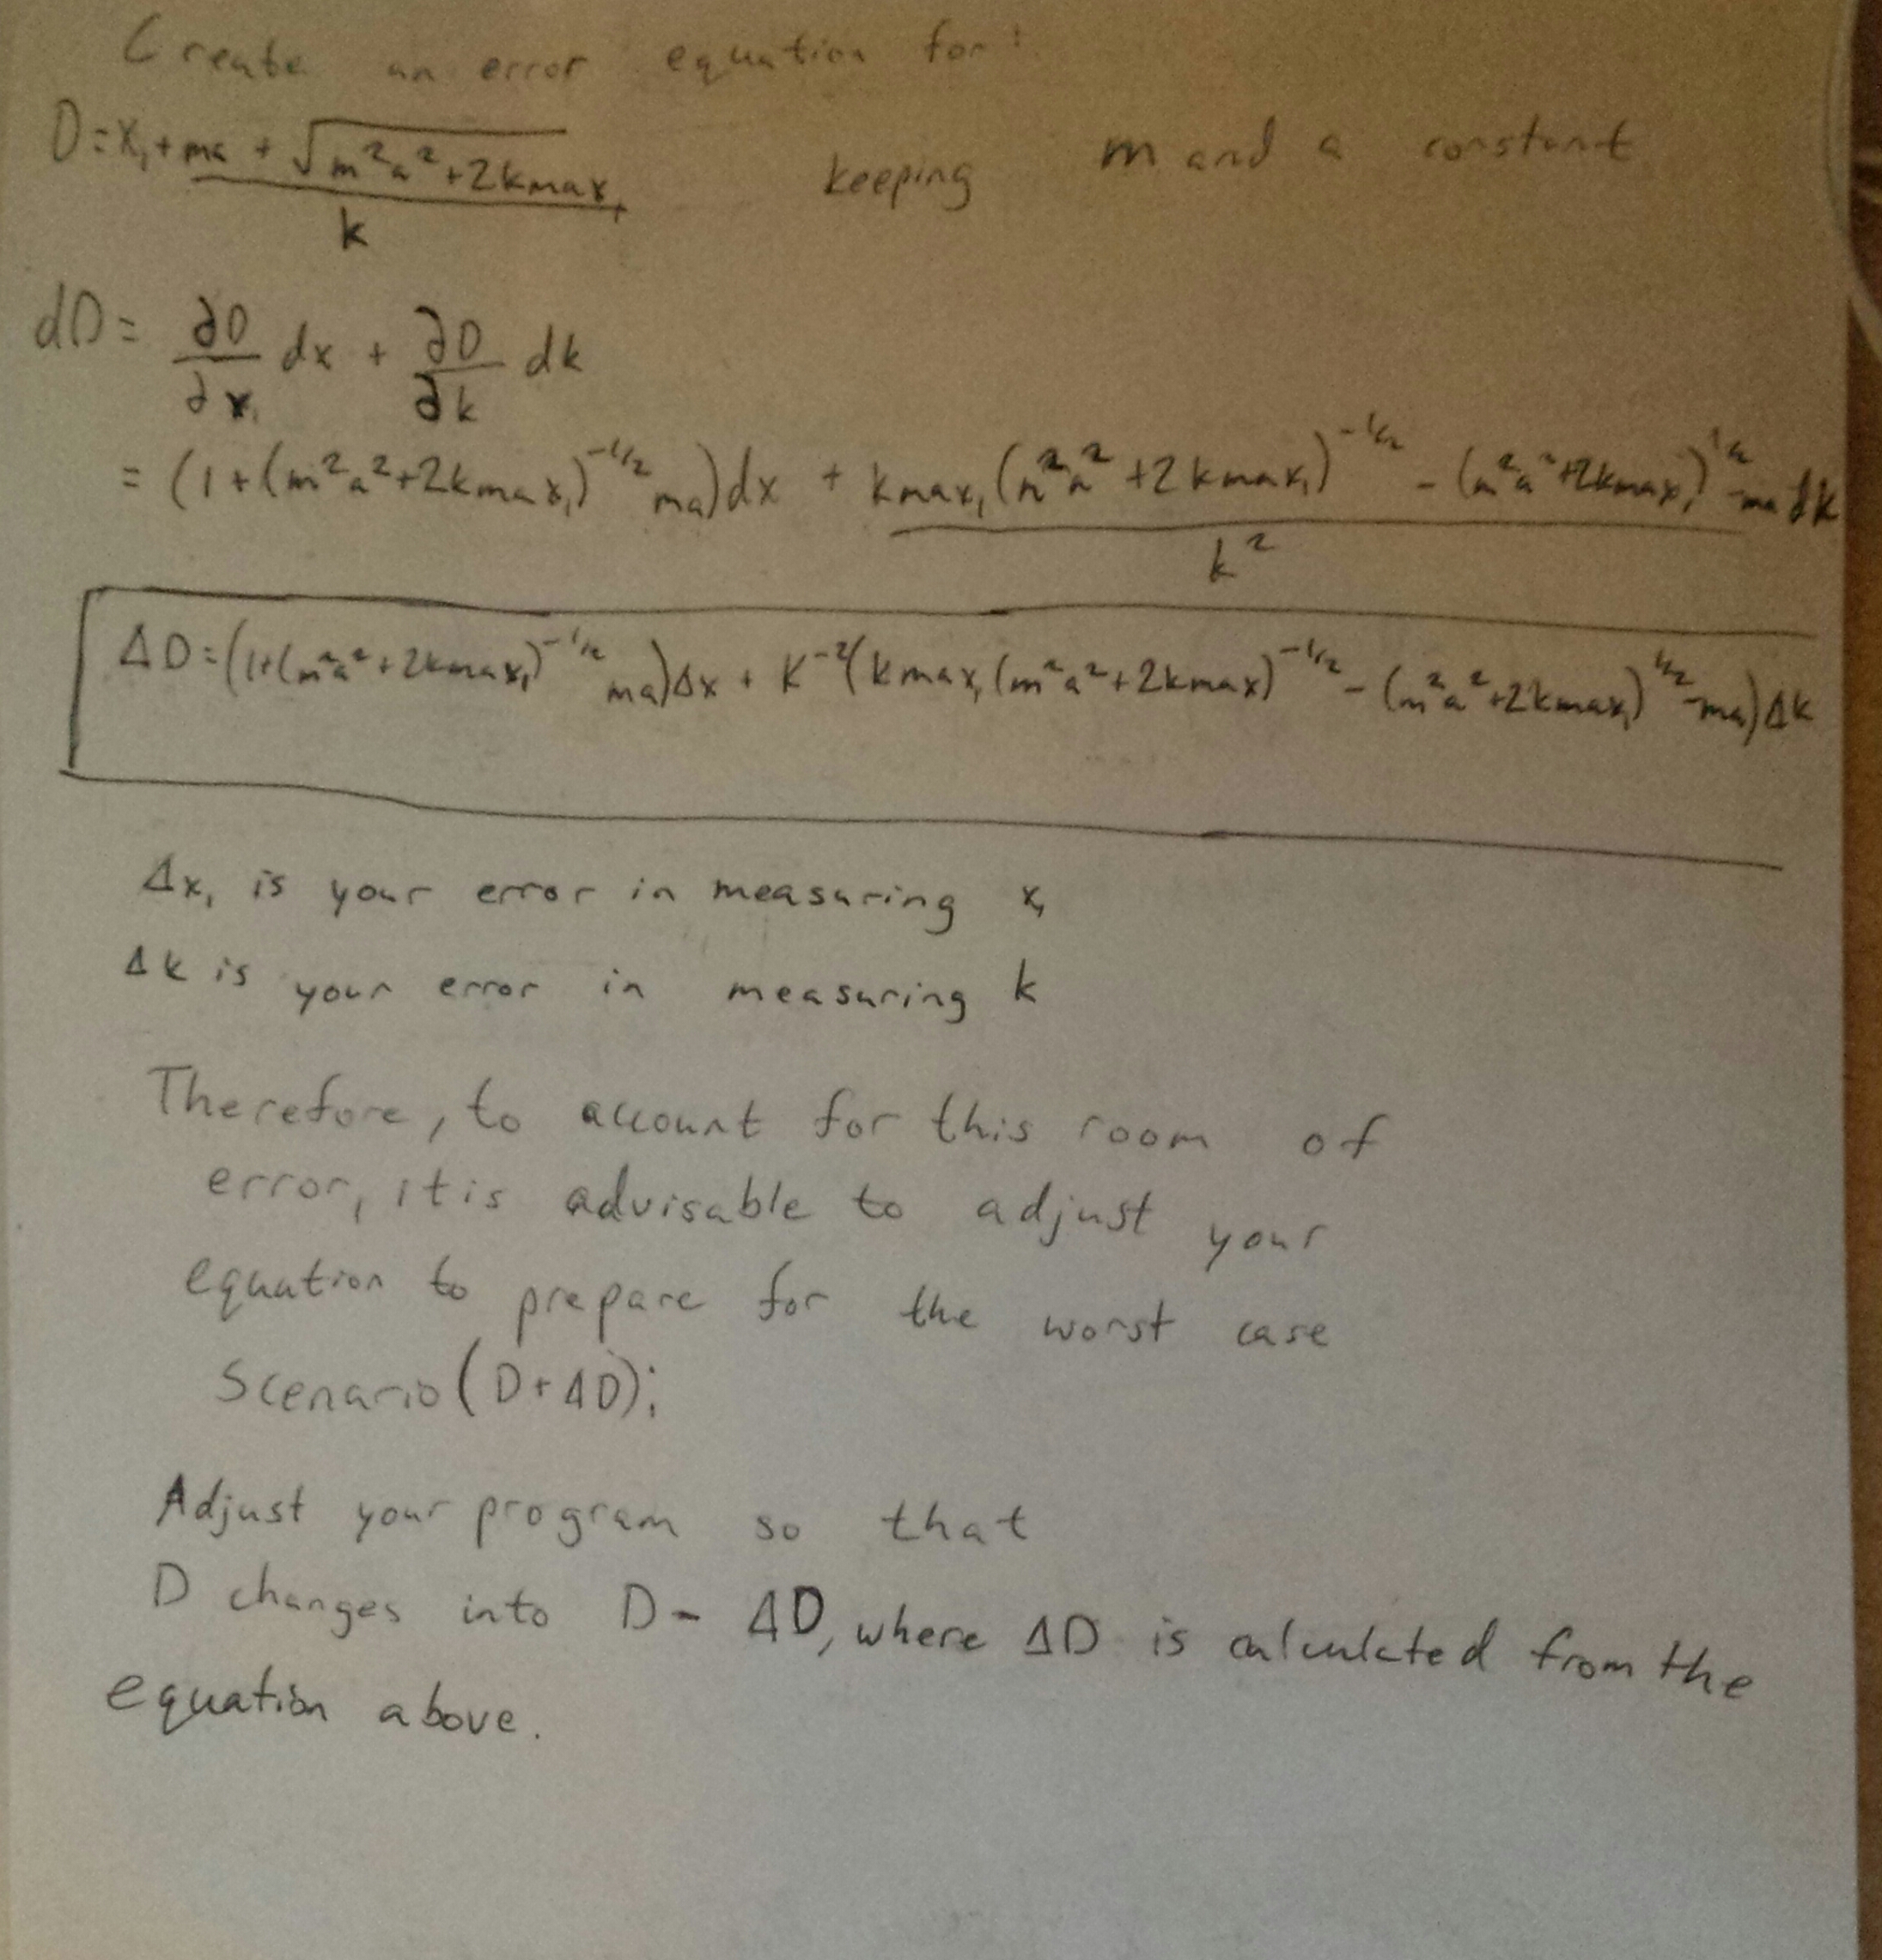 Create an error equation for:
D = x₁ + (ma + √(m²a² + 2kmax₁))/k keeping m and a constant
dD = ∂D/∂x₁ dx + ∂D/∂k dk
= (1+(m²a²+2kmax₁)^(-1/2) ma)dx + (kmax₁(m²a²+2kmax₁)^(-1/2) - (m²a²+2kmax₁)^(1/2) - ma)/k² dk
ΔD = (1+(m²a²+2kmax₁)^(-1/2) ma)Δx + K^(-2)(kmax₁(m²a²+2kmax)^(-1/2) - (m²a²+2kmax₁)^(1/2) - ma)Δk
Δx₁ is your error in measuring x₁
Δk is your error in measuring k
Therefore, to account for this room of
error, it is advisable to adjust your
equation to prepare for the worst case
Scenario (D+ΔD);
Adjust your program so that
D changes into D - ΔD, where ΔD is calculated from the
equation above.